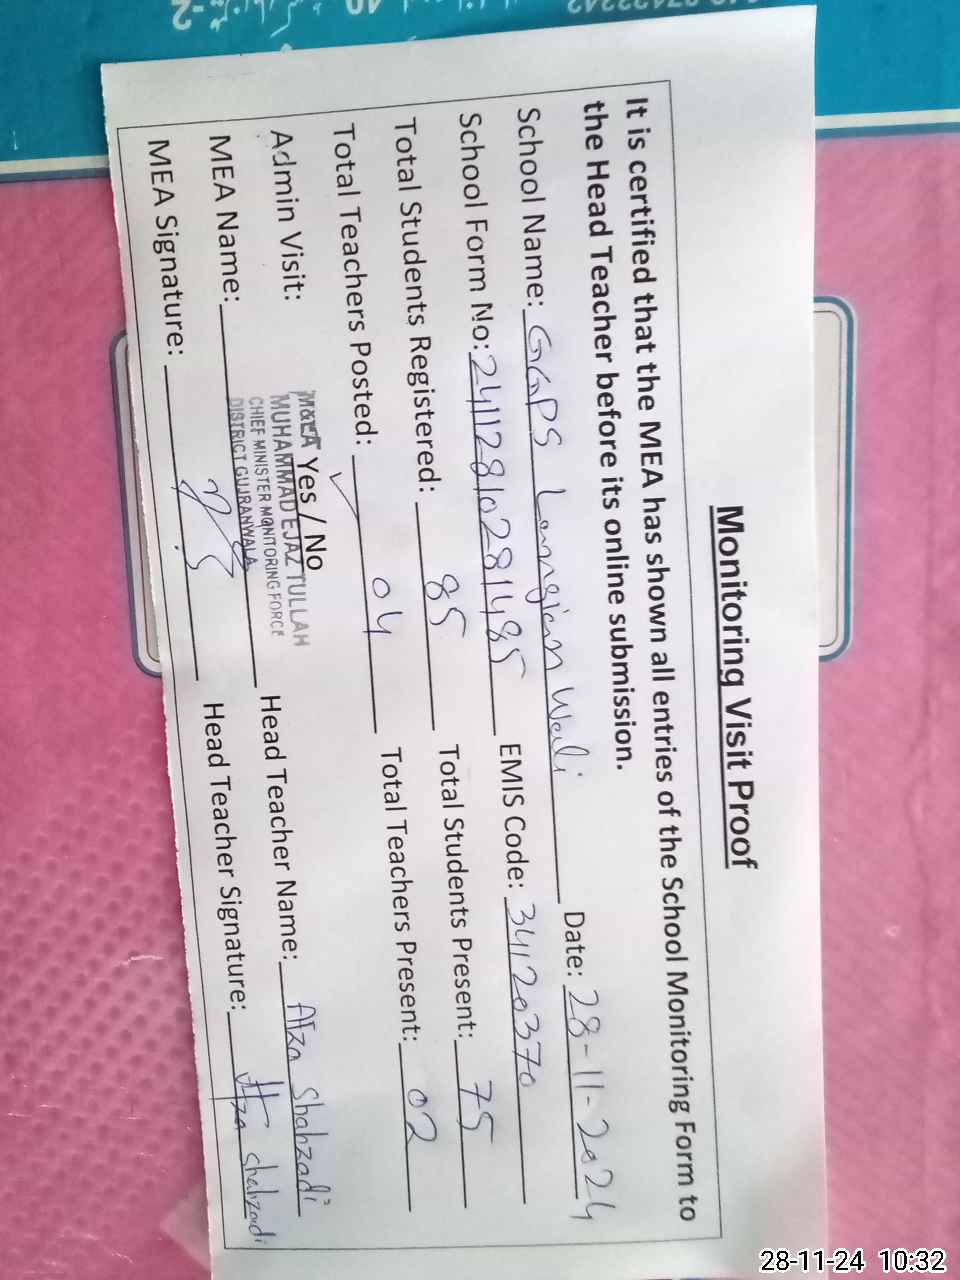 Monitoring Visit Proof
It is certified that the MEA has shown all entries of the School Monitoring Form to
the Head Teacher before its online submission.
School Name: GGPS Langian Wali Date: 28-11-2024
School Form No: 24112810281485 EMIS Code: 34120370
Total Students Registered: 85 Total Students Present: 75
Total Teachers Posted: 04 Total Teachers Present: 02
Admin Visit: Yes / No
MEA Name: Head Teacher Name: Afza Shahzadi
MUHAMMAD EJAZ TULLAH
CHIEF MINISTER MONITORING FORCE
DISTRICT GUJRANWALA
MEA Signature: Head Teacher Signature: Afza Shahzadi
28-11-24 10:32